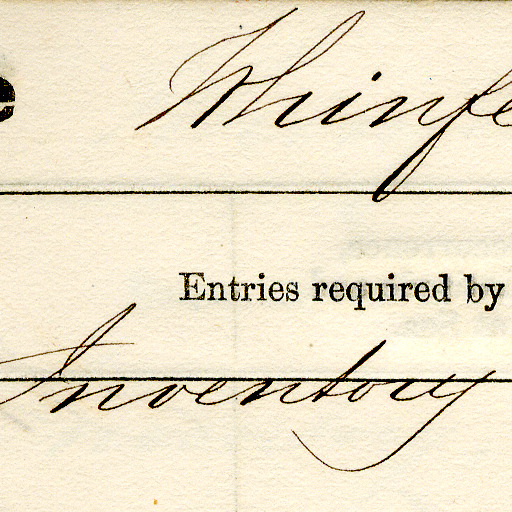 Whinfe
Entries required by
Inventory